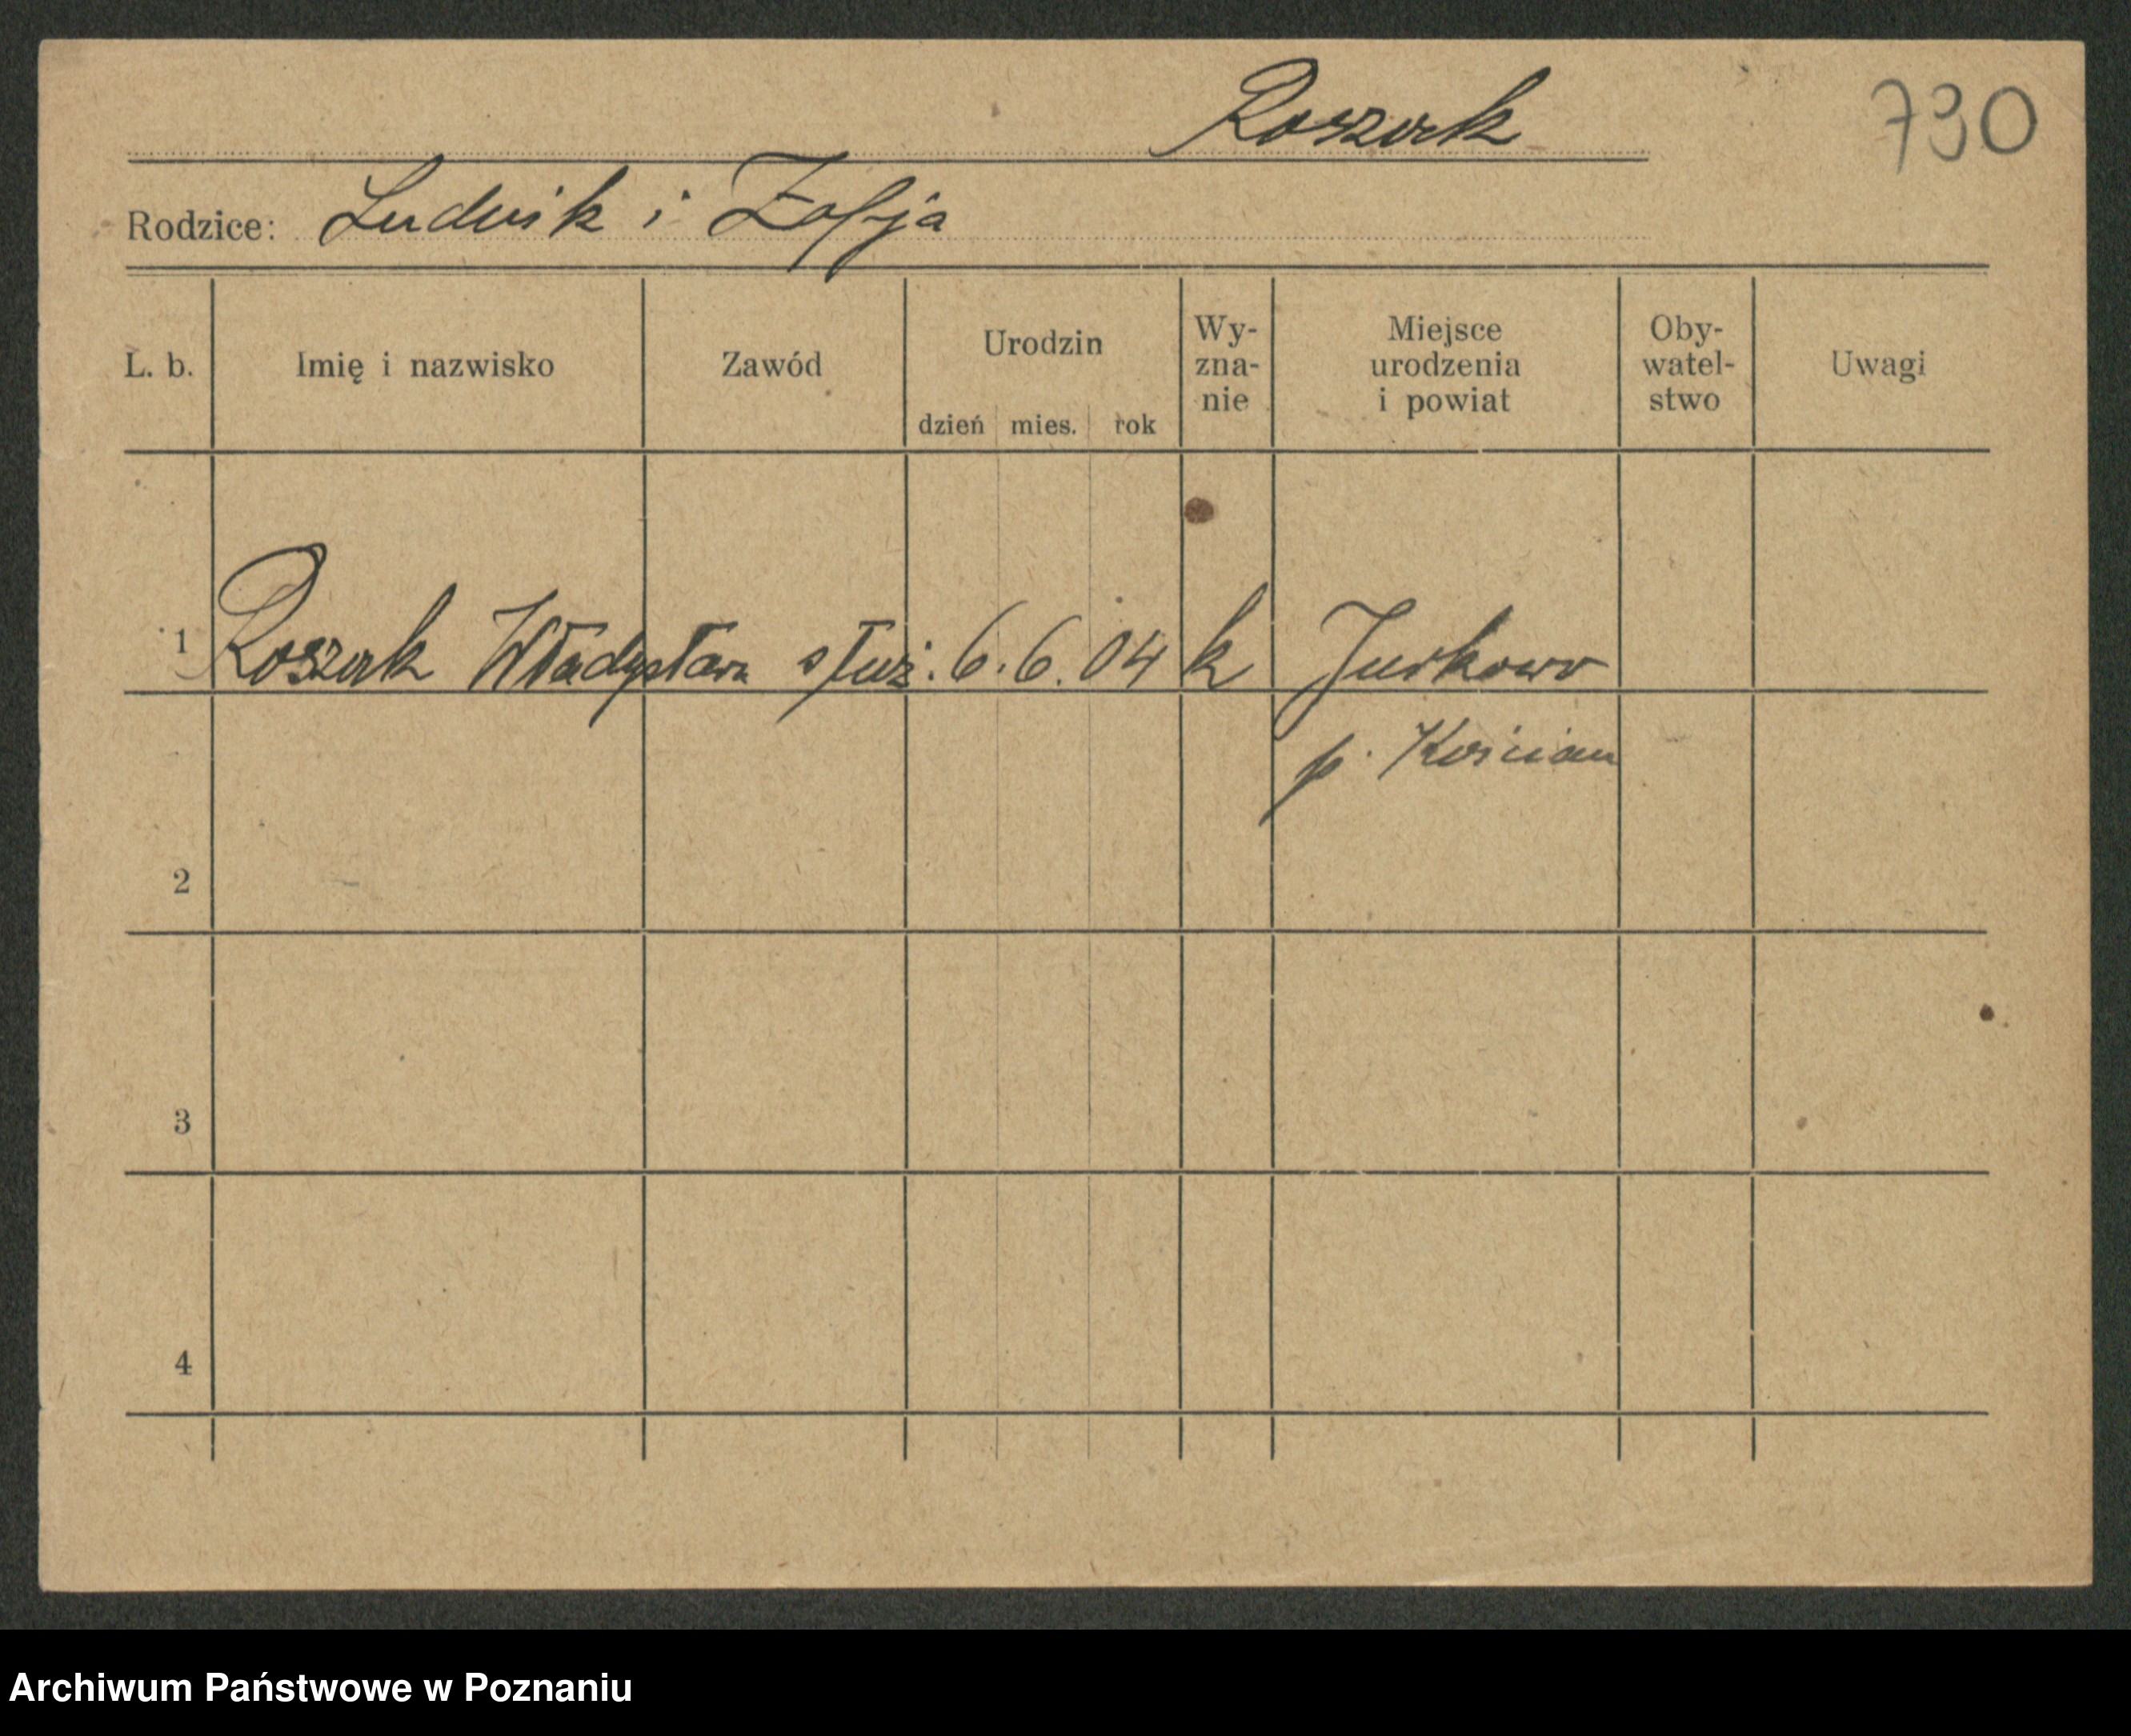 Roszak
730
Rodzice: Ludwik i Zofja
L. b.
Imię i nazwisko
Zawód
Urodzin
dzień mies. rok
Wy-
zna-
nie
Miejsce
urodzenia
i powiat
Oby-
watel-
stwo
Uwagi
1 Roszak Władysław służ. 6. 6. 04 k Jurkowo
p. Kościan
2
3
4
Archiwum Państwowe w Poznaniu